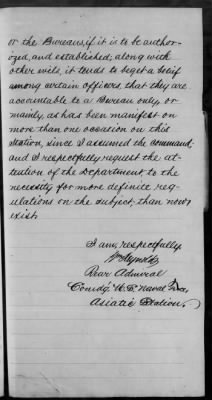 or the Bureaus, if it is to be author-
ized, and established; along with
other evils, it tends to beget a belief
among certain officers, that they are
accountable to a Bureau only, or
mainly, as has been manifest on
more than one occasion on this
Station, since I assumed the command;
and I respectfully request the at-
tention of the Department to the
necessity for more definite reg-
ulations on the subject than now
exist.
I am, respectfully,
Wm Reynolds
Rear Admiral
Comdg. U.S. Naval Force
Asiatic Station.